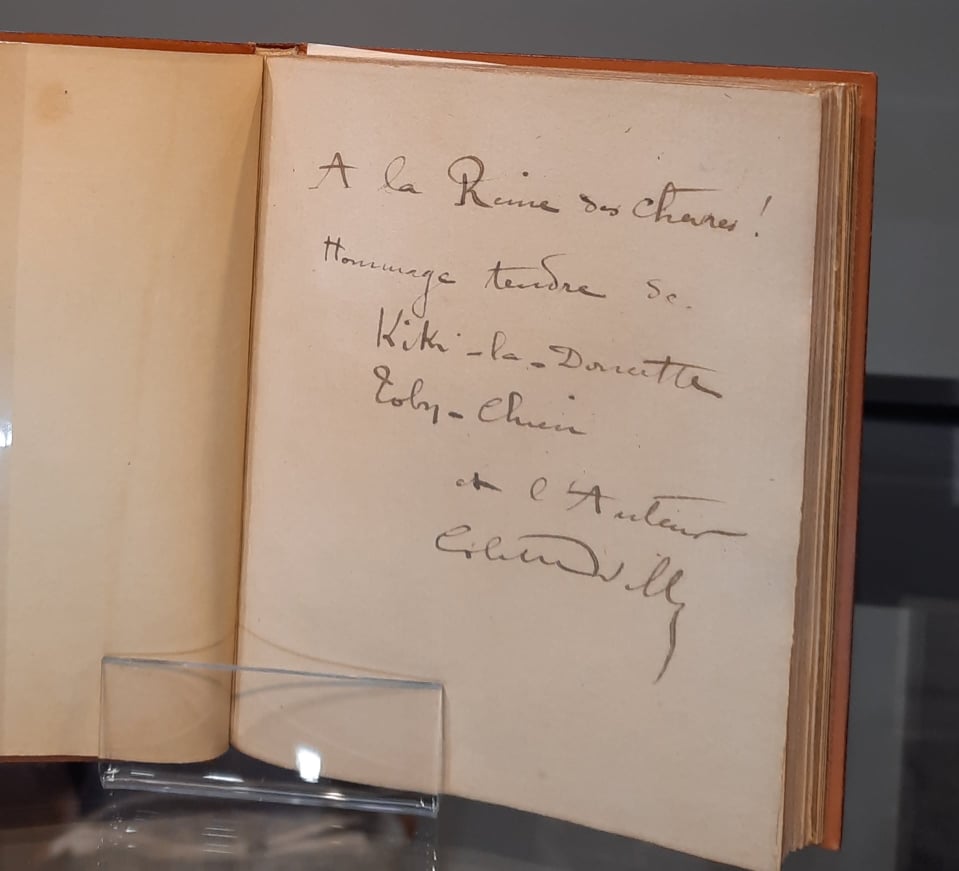 A la Reine des Chèvres !
Hommage tendre de
Kiki-la-Doucette
Toby-Chien
et l'Auteur
Colette Willy